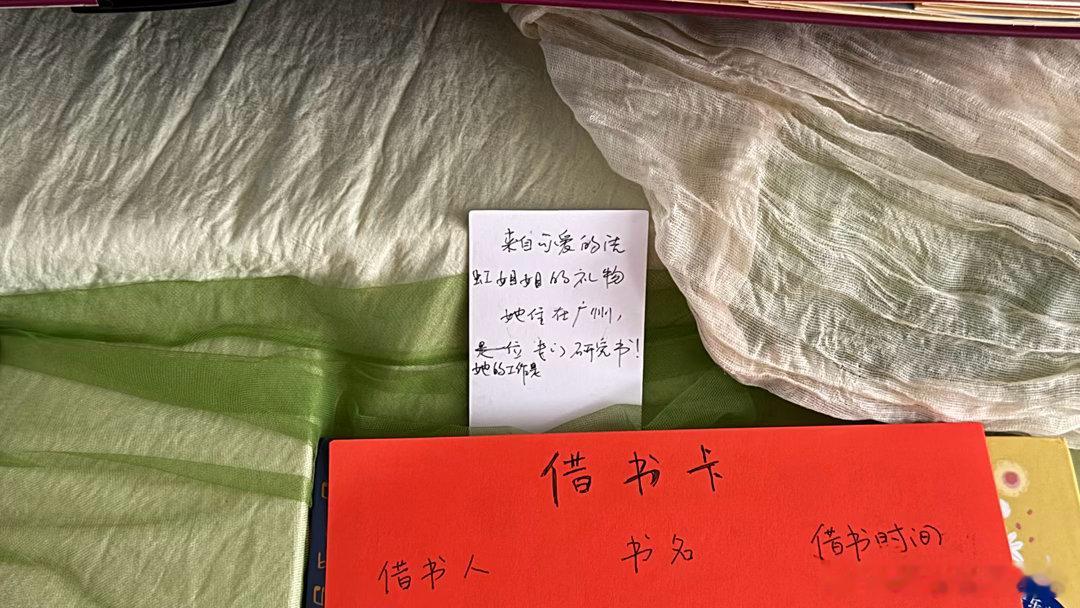 来自可爱的法
虹姐姐的礼物
她住在广州，
是一位专门研究书！
她的工作是
借书卡
借书人 书名 借书时间
乐